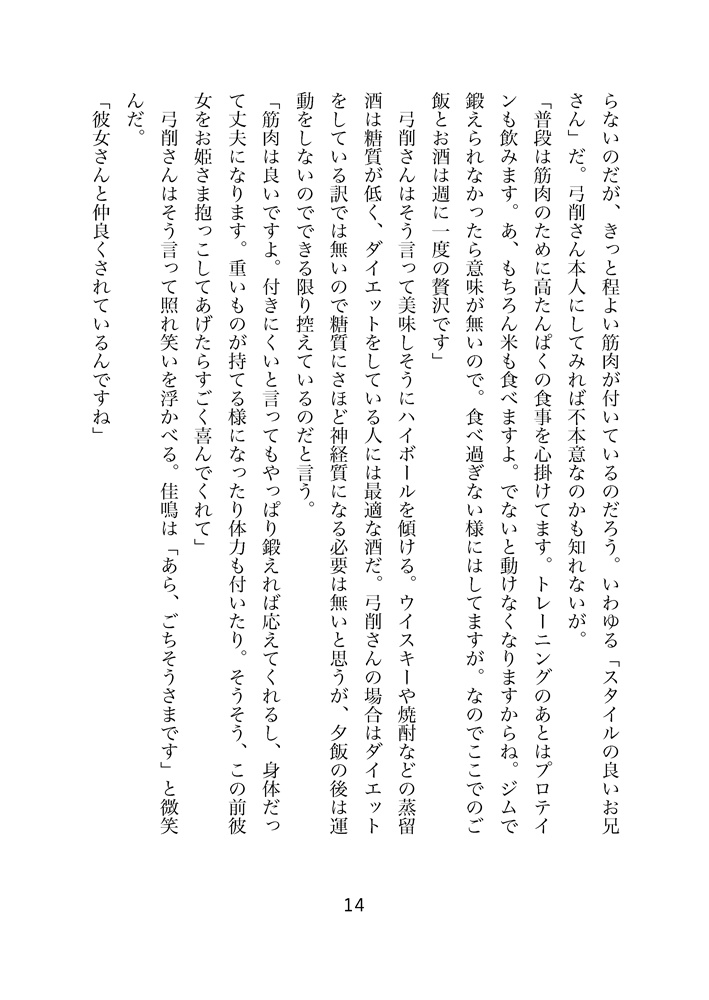 らないのだが、きっと程よい筋肉が付いているのだろう。いわゆる「スタイルの良いお兄
さん」だ。弓削さん本人にしてみれば不本意なのかも知れないが。
「普段は筋肉のために高たんぱくの食事を心掛けてます。トレーニングのあとはプロテイ
ンも飲みます。あ、もちろん米も食べますよ。でないと動けなくなりますからね。ジムで
鍛えられなかったら意味が無いので。食べ過ぎない様にはしてますが。なのでここでのご
飯とお酒は週に一度の贅沢です」
　弓削さんはそう言って美味しそうにハイボールを傾ける。ウイスキーや焼酎などの蒸留
酒は糖質が低く、ダイエットをしている人には最適な酒だ。弓削さんの場合はダイエット
をしている訳では無いので糖質にさほど神経質になる必要は無いと思うが、夕飯の後は運
動をしないのでできる限り控えているのだと言う。
「筋肉は良いですよ。付きにくいと言ってもやっぱり鍛えれば応えてくれるし、身体だっ
て丈夫になります。重いものが持てる様になったり体力も付いたり。そうそう、この前彼
女をお姫さま抱っこしてあげたらすごく喜んでくれて」
　弓削さんはそう言って照れ笑いを浮かべる。佳鳴は「あら、ごちそうさまです」と微笑
んだ。
「彼女さんと仲良くされているんですね」
14